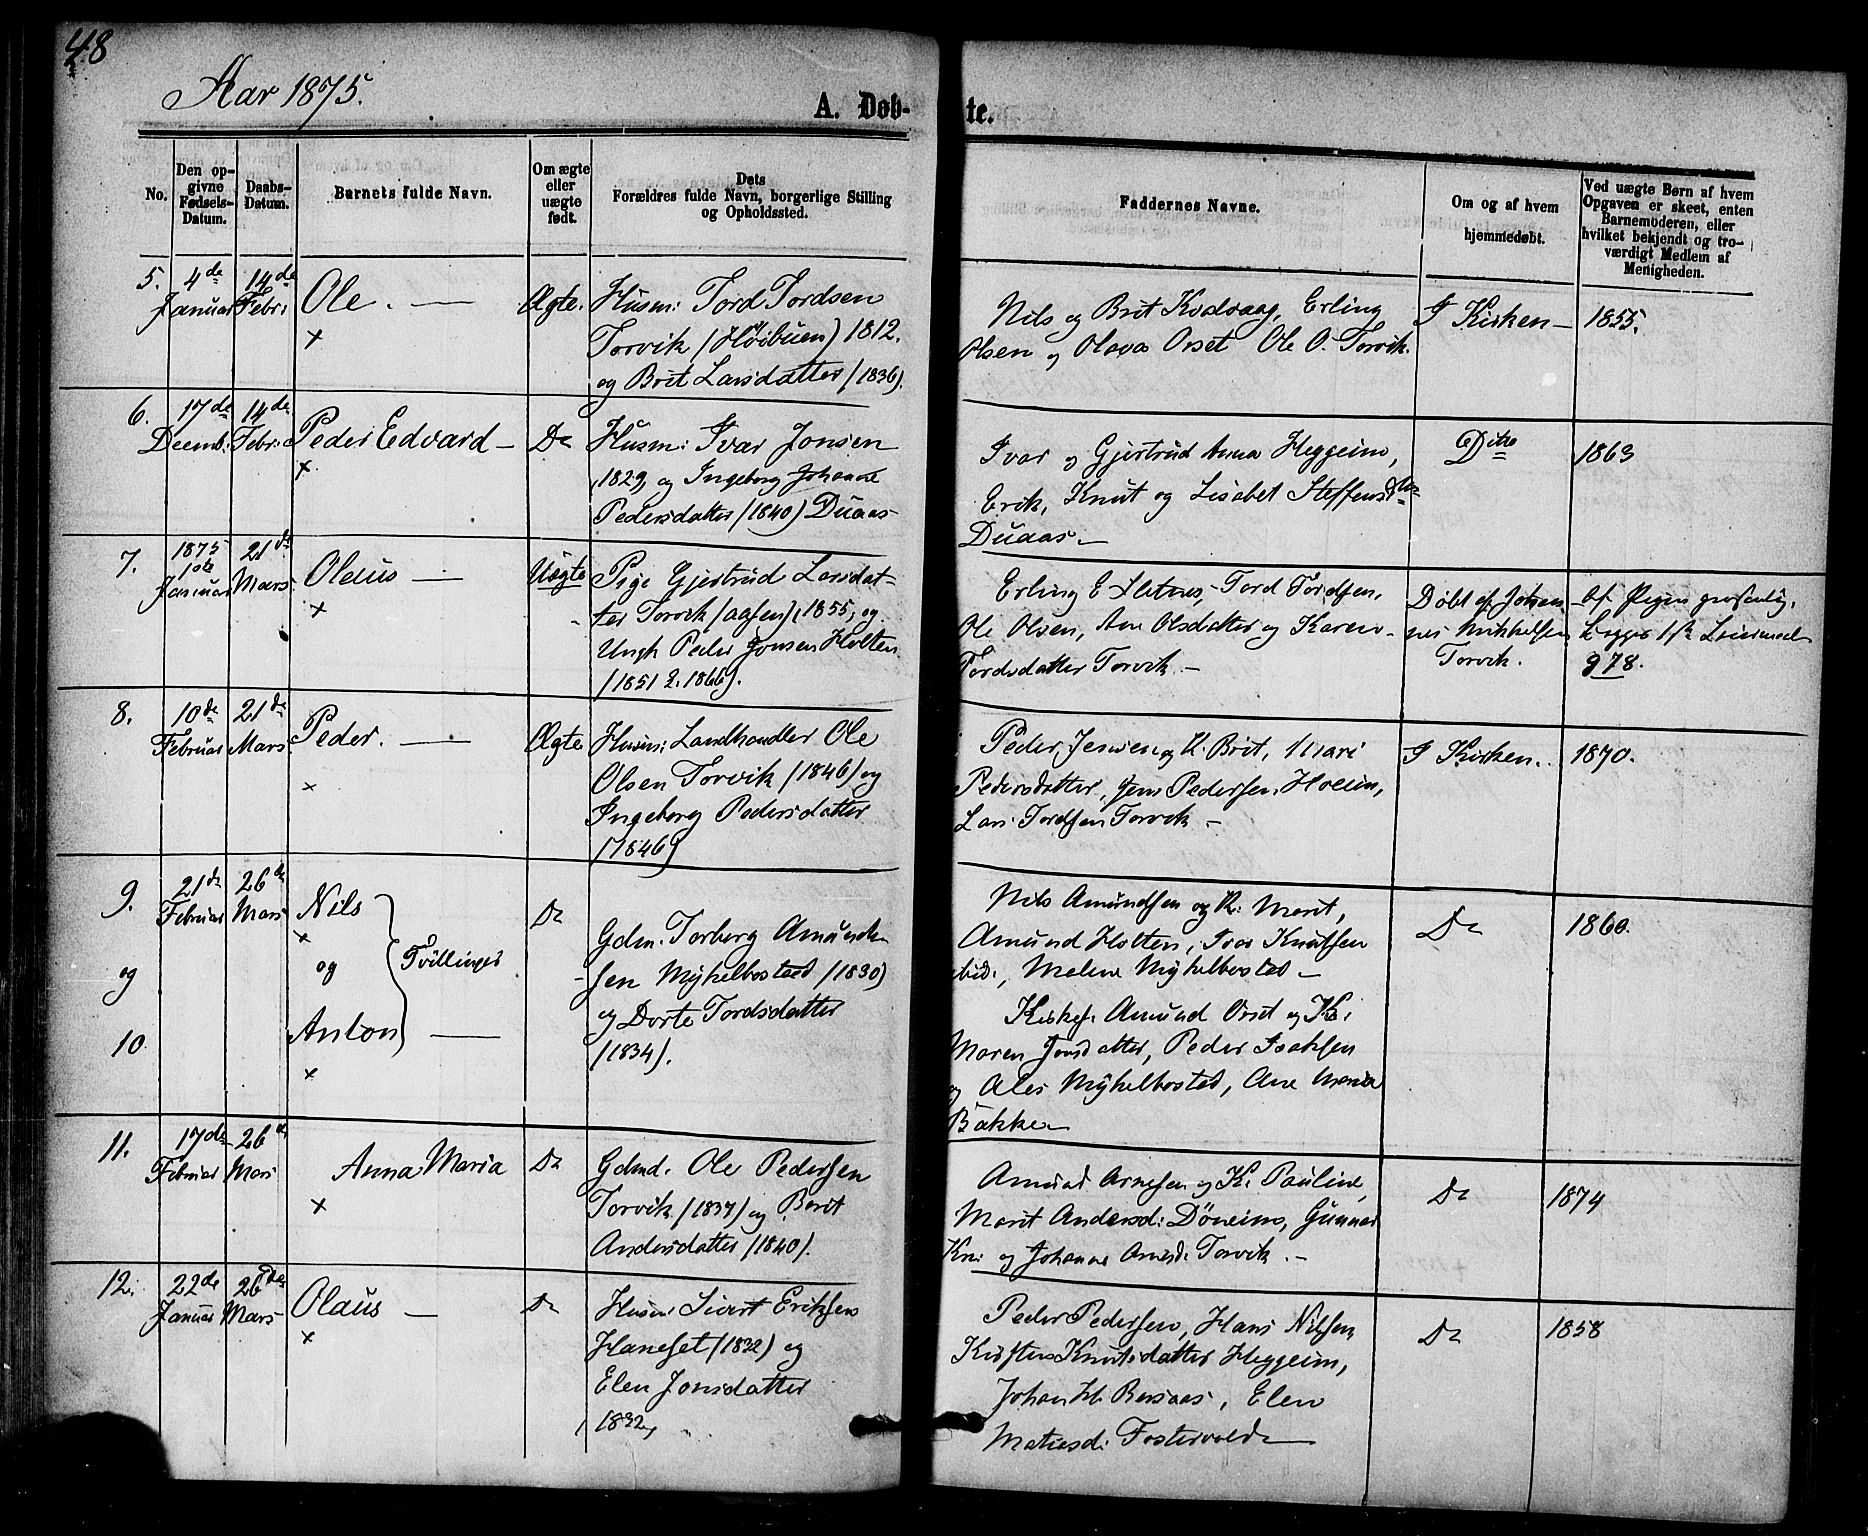 48
Aar 1875.
A. Døb-
te.
No.
Den op-
givne
Fødsels-
Datum.
Daabs-
Datum.
Barnets fulde Navn.
Om ægte
eller
uægte
født.
Dets
Forældres fulde Navn, borgerlige Stilling
og Opholdssted.
Faddernes Navne.
Om og af hvem
hjemmedøbt.
Ved uægte Børn af hvem
Opgaven er skeet, enten
Barnemoderen, eller
hvilket bekjendt og tro-
værdigt Medlem af
Menigheden.
5.
4de
Januar
14de
Febr:
Ole. —
×
Ægte.
Husm: Tord Tordsen
Torvik (Høibuen) 1812.
og Brit Larsdatter (1836).
Nils og Brit Kvdvaag, Erling
Olsen og Olava Orset Ole O. Torvik.
I Kirken —
1855.
6.
17de
Decemb:
14de
Febr:
Peder Edvard —
×
Do
Husm: Ivar Jonsen
1829, og Ingeborg Johanne
Pedersdatter (1840) Duaas —
Ivar og Gjertrud Anna Heggeim,
Erik, Knut og Lisabet Steffensd
Duaas —
Dito
1863
7.
1875
1ste
Januar
21de
Mars.
Olaus —
×
Uægte
Pige Gjertrud Larsdat-
ter Torvik (aasen), 1855, og
Ungk Peder Jonsen Holten
(1851 2. 1866).
Erling E. Tord Tordsen,
Ole Olsen, Ane Olsdatter og Karen
Tordsdatter Torvik —
Døbt af Johan-
nes Mikkelsen
Torvik.
Af Pigen
1ste Leiermaal
978.
8.
10de
Februar
21de
Mars.
Peder. —
×
Ægte
Husm: Landhandler Ole
Olsen Torvik (1846) og
Ingeborg Pedersdatter
(1846)
Peder Jensen og K. Brit, Mari
Pedersdatter, Jens Pedersen Holein,
Lars Tordsen Torvik —
I Kirken.
1870.
9.
og
10.
21de
Februar
26de
Mars
Nils
×
og
Tvillinger
Anton —
×
Do
Gdm. Torberg Amund-
sen Myhelbostad (1830)
og Dorte Tordsdatter
(1834).
Nils Amundsen og K: Marit,
Amund Holten, Ivar Knutsen
ibid:, Malene Myhelbostad —
Kirkes. Amund Orset og K:
Maren Jonsdatter, Peder Isaksen
og Ales Myhelbostad, Ane Maria
Bakken
Do
1860.
11.
17de
Februar
26de
Mars
Anna Maria
×
Do
Gdmd. Ole Pedersen
Torvik (1837) og Berit
Andersdatter (1840).
Amund Arnesen og K: Pauline,
Marit Andersd: Döneim, Gunnar
Kn: og Johanne Arnesd: Torvik. —
Do
1874
12.
22de
Januar
26de
Mars
Olaus —
×
Do
Husm: Sivert Eriksen
Haneset (1832) og
Elen Jonsdatter
(1832)
Peder Pedersen, Hans Nilsen,
Kirsten Knutsdatter Heggeim,
Johan H. Bersaas, Elen
Matiesd: Fostervold
Do
1858